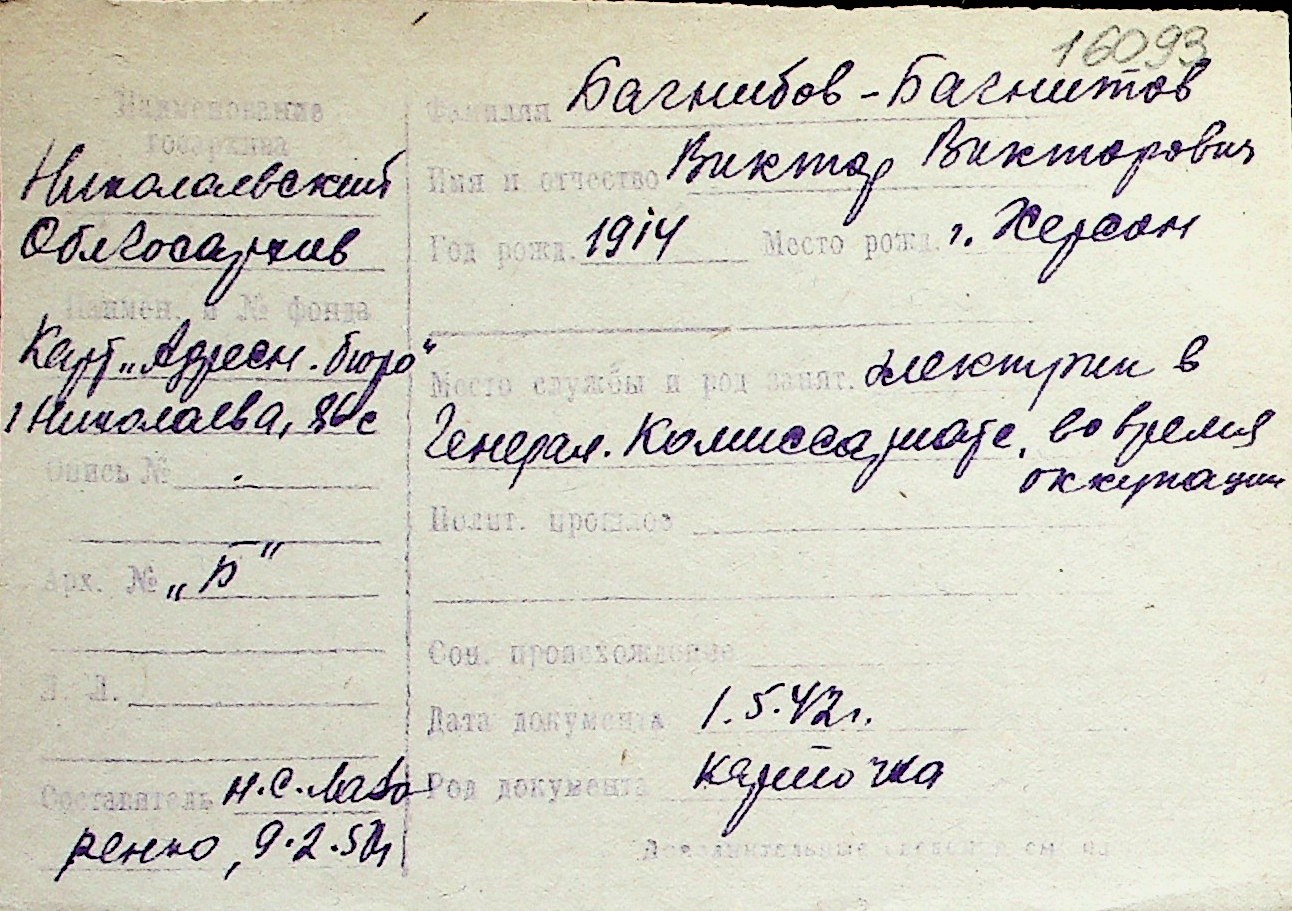 16093
Наименование
госархива
Николаевский
Облгосархив
Наимен. и № фонда
Карт. „Адресн. бюро"
г. Николаева,
Опись №
Арх. № „Б"
Л. Л.
Составитель Н.С.
ренко, 9.2.
Фамилия Багнибов-Багнитов
Имя и отчество Виктор Викторович
Год рожд. 1914 Место рожд. г. Херсон
Место службы и род занят. электрик в
Генерал. Комиссариате, во время
оккупации
Полит. прошлое
Соц. происхождение
Дата документа 1.5.42г.
Род документа карточка
Дополнительные сведения см. на